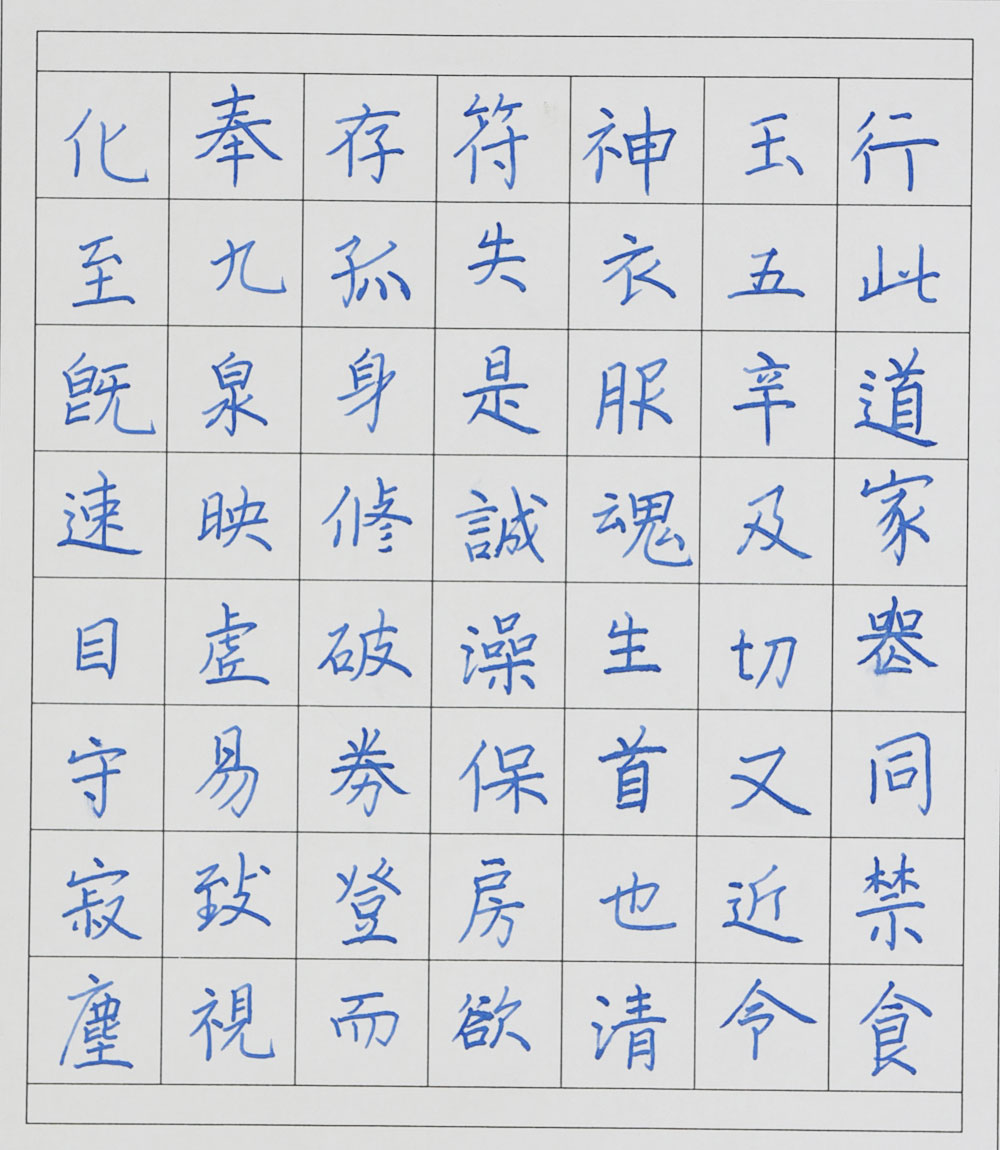 行此道家喪同禁食
玉五辛及切又近令
神衣服魂生首也清
符失是誠澡保房欲
存孤身修破券登而
奉九泉映虛易致視
化至既速目守寂塵